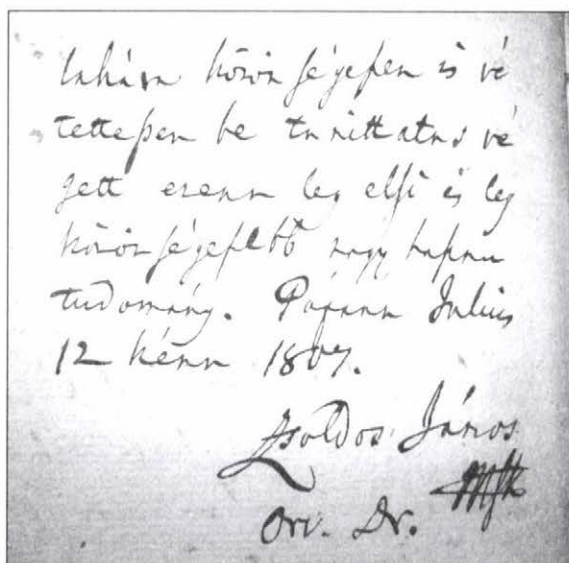 közönségesen is vé
tettessen be tanittatás vé
gett ezenn leg elsö és leg
közönségesebb nagy hasznu
tudomány. Pápánn Julius
12 kénn 1807.
Zsoldos János
Orv. Dr.